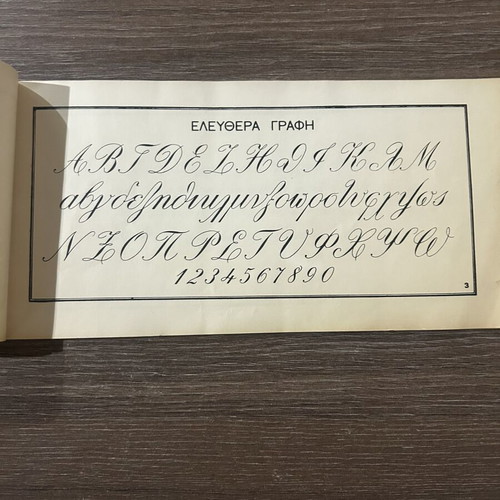 ΕΛΕΥΘΕΡΑ ΓΡΑΦΗ
Α Β Γ Δ Ε Ζ Η Θ Ι Κ Λ Μ
αβγδεζηθικλμνξοπροτυφχψως
Ν Ξ Ο Π Ρ Σ Τ Υ Φ Χ Ψ Ω
1 2 3 4 5 6 7 8 9 0
3